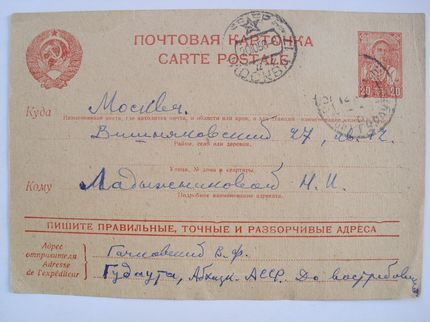 ПОЧТОВАЯ КАРТОЧКА
CARTE POSTALE
20 20
Куда Москва.
Наименование места, где находится почта, и области или края, а для станций наименование ж. д.
Вишняковский 27, кв. 12.
Район, село или деревня.
Улица, № дома и квартиры.
Кому Ладыжниковой Н. И.
Подробное наименование адресата.
ПИШИТЕ ПРАВИЛЬНЫЕ, ТОЧНЫЕ И РАЗБОРЧИВЫЕ АДРЕСА
Адрес
отправителя
Adresse
de l'expéditeur
В. Ф.
Гудаута, Абхазк. АССР. До востребован